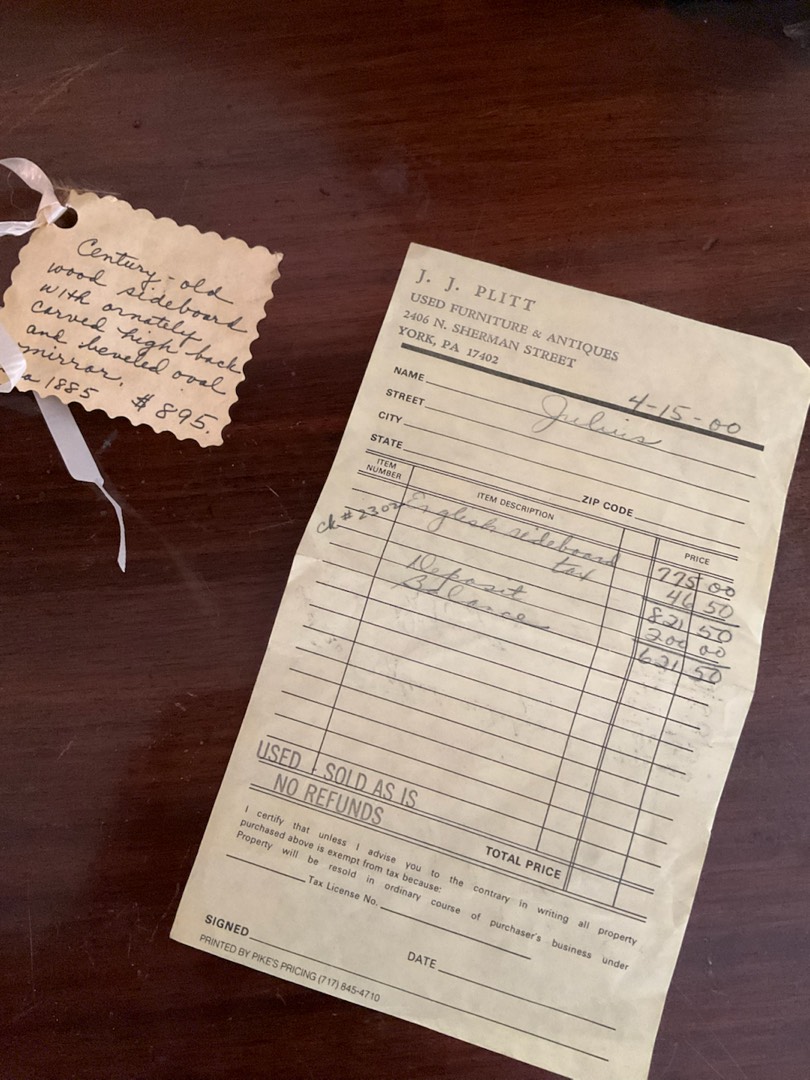 Century-old
wood sideboard
with ornately
carved high back
and beveled oval
mirror.
a 1885 $895.
J. J. PLITT
USED FURNITURE & ANTIQUES
2406 N. SHERMAN STREET
YORK, PA 17402
4-15-00
NAME Julius
STREET
CITY
STATE ZIP CODE
ITEM NUMBER ITEM DESCRIPTION PRICE
ck # 2302 English sideboard 775 00
tax 46 50
821 50
Deposit 200 00
Balance 621 50
USED - SOLD AS IS
NO REFUNDS
TOTAL PRICE
I certify that unless I advise you to the contrary in writing all property
purchased above is exempt from tax because:
Property will be resold in ordinary course of purchaser's business under
Tax License No.
SIGNED
DATE
PRINTED BY PIKE'S PRICING (717) 845-4710